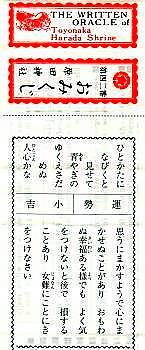 THE WRITTEN
ORACLE of
Toyonaka
Harada Shrine
おみくじ
原田神社
ひとかたに
なびくと
見せて
青やぎの
ゆくえさだ
めぬ
人心かな
運勢
小吉
思うにまかすようで心にま
かせぬことがあり おもわ
ぬ幸福ある様でも よく気
をつけないと後で 損する
ことあり 女難にことにき
をつけなさい